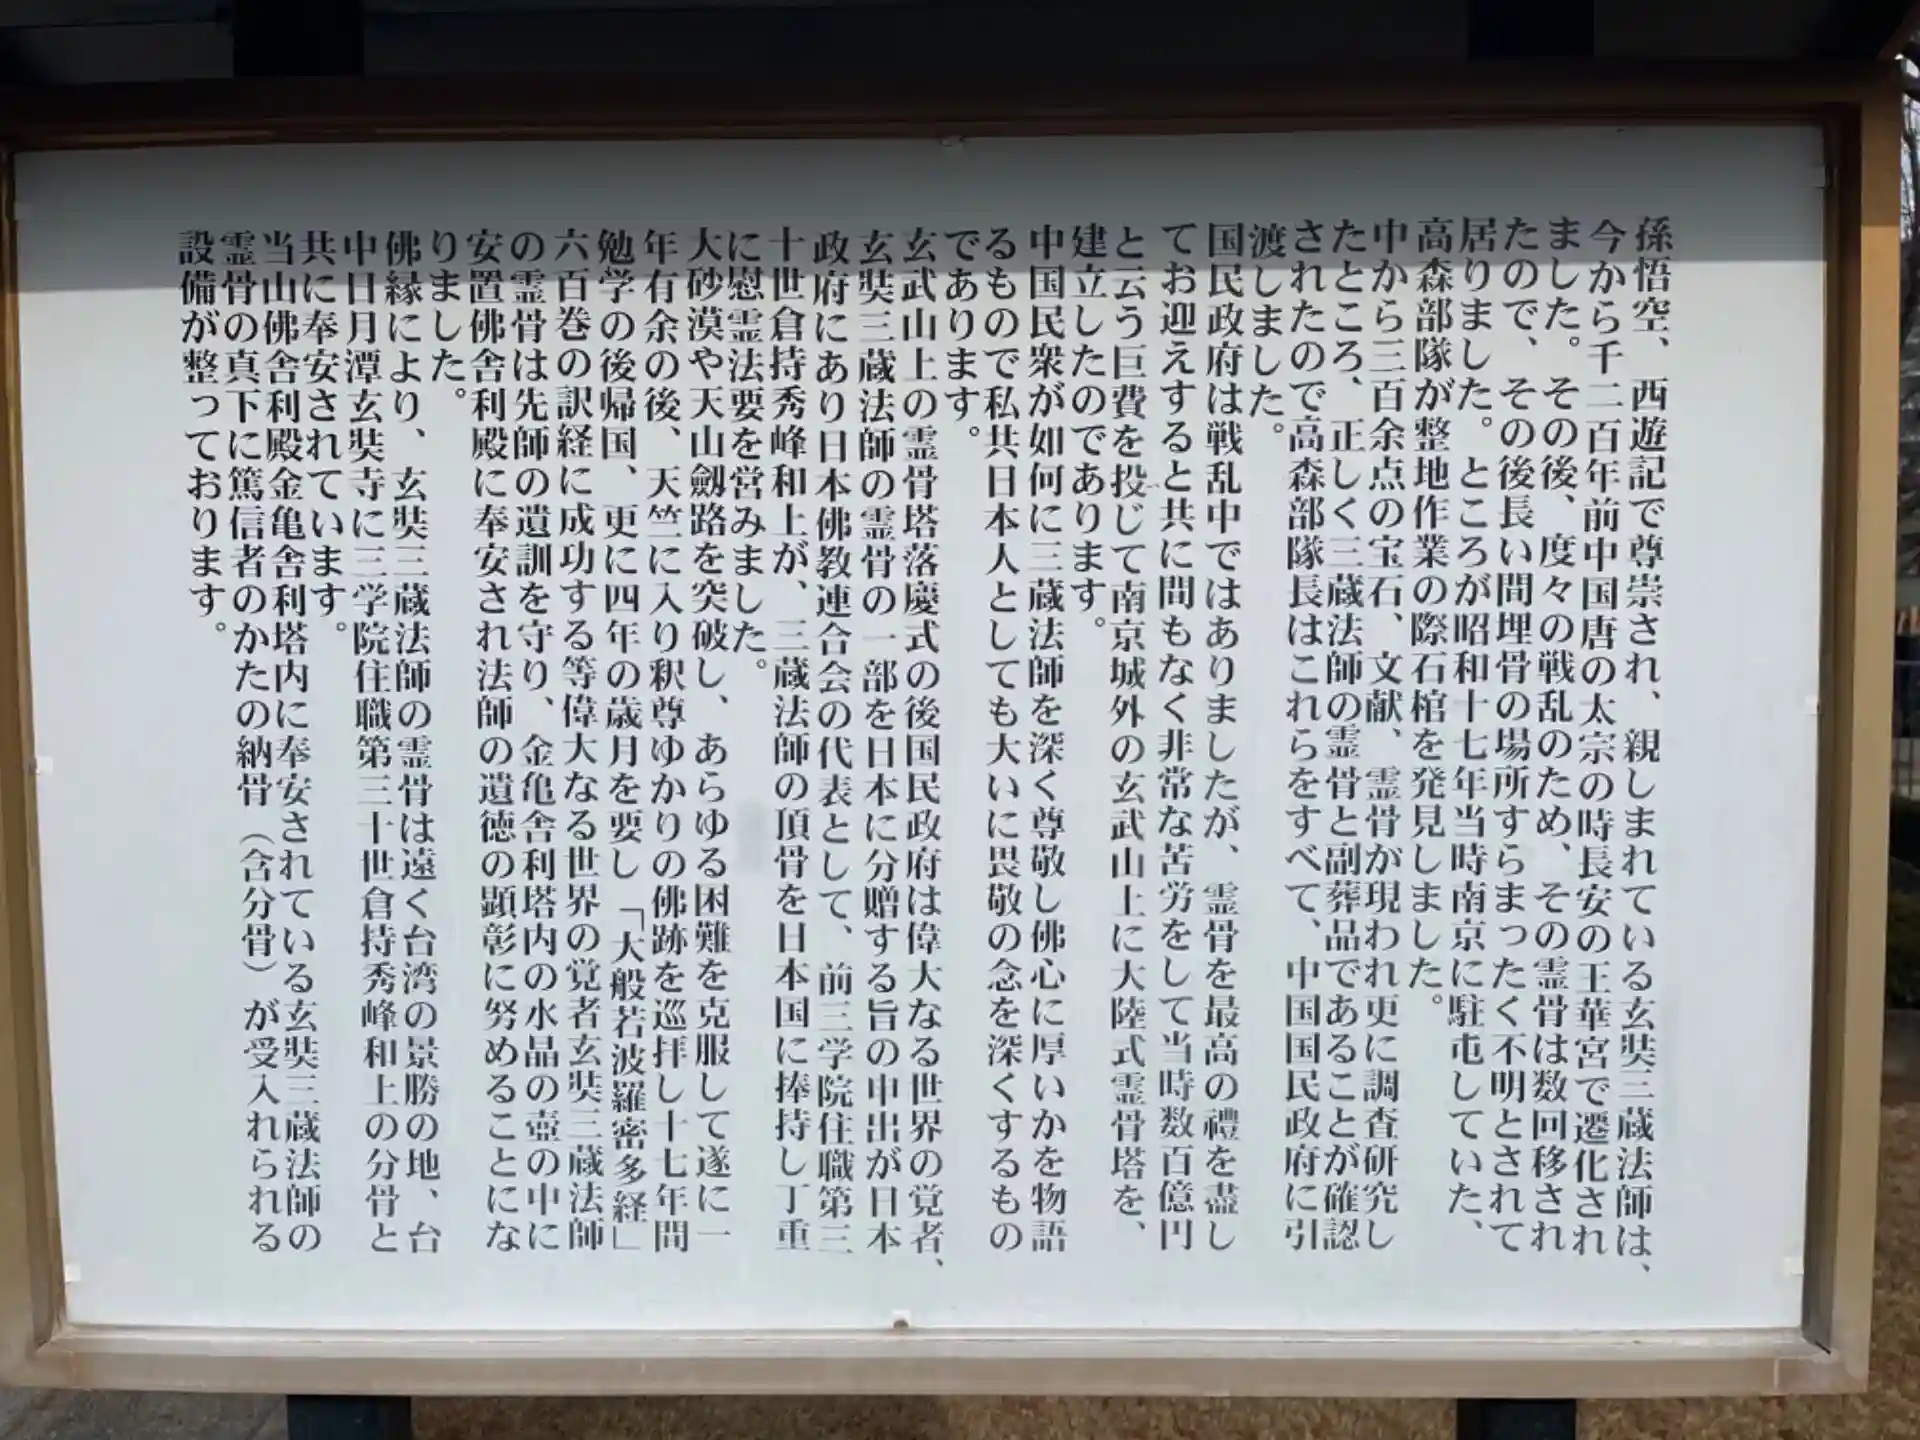 孫悟空、西遊記で尊崇され、親しまれている玄奘三蔵法師は、
今から千二百年前中国唐の太宗の時長安の王華宮で遷化され
ました。その後、度々の戦乱のため、その霊骨は数回移され
たので、その後長い間埋骨の場所すらまったく不明とされて
居りました。ところが昭和十七年当時南京に駐屯していた、
高森部隊が整地作業の際石棺を発見しました。
中から三百余点の宝石、文献、霊骨が現われ更に調査研究し
たところ、正しく三蔵法師の霊骨と副葬品であることが確認
されたので高森部隊長はこれらをすべて、中国国民政府に引
渡しました。
国民政府は戦乱中ではありましたが、霊骨を最高の禮を盡し
てお迎えすると共に間もなく非常な苦労をして当時数百億円
と云う巨費を投じて南京城外の玄武山上に大陸式霊骨塔を、
建立したのであります。
中国民衆が如何に三蔵法師を深く尊敬し佛心に厚いかを物語
るもので私共日本人としても大いに畏敬の念を深くするもの
であります。
玄武山上の霊骨塔落慶式の後国民政府は偉大なる世界の覚者、
玄奘三蔵法師の霊骨の一部を日本に分贈する旨の申出が日本
政府にあり日本佛教連合会の代表として、前三学院住職第三
十世倉持秀峰和上が、三蔵法師の頂骨を日本国に捧持し丁重
に慰霊法要を営みました。
大砂漠や天山劔路を突破し、あらゆる困難を克服して遂に一
年有余の後、天竺に入り釈尊ゆかりの佛跡を巡拝し十七年間
勉学の後帰国、更に四年の歳月を要し「大般若波羅密多経」
六百巻の訳経に成功する等偉大なる世界の覚者玄奘三蔵法師
の霊骨は先師の遺訓を守り、金亀舎利塔内の水晶の壺の中に
安置佛舎利殿に奉安され法師の遺徳の顕彰に努めることにな
りました。
佛縁により、玄奘三蔵法師の霊骨は遠く台湾の景勝の地、台
中日月潭玄奘寺に三学院住職第三十世倉持秀峰和上の分骨と
共に奉安されています。
当山佛舎利殿金亀舎利塔内に奉安されている玄奘三蔵法師の
霊骨の真下に篤信者のかたの納骨（含分骨）が受入れられる
設備が整っております。